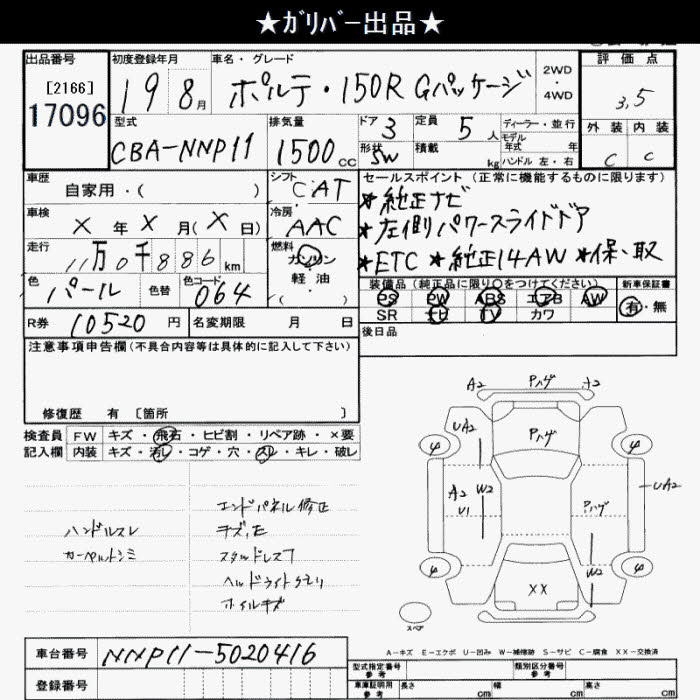 ★ｶﾞﾘﾊﾞｰ出品★
出品番号
[2166]
17096
初度登録年月
19 8月
車名・グレード
ポルテ・150R Gパッケージ
2WD
4WD
評価点
3.5
外装 内装
C C
型式
CBA-NNP11
排気量
1500cc
ドア 3
形状 SW
定員 5人
積載 kg
ディーラー・並行
モデル
年式 年
ハンドル 左・右
車歴
自家用・( )
シフト
CAT
車検
X年X月(X日)
冷房
AAC
走行
11万0千886km
燃料
ガソリン
軽油
( )
色
パール
色替
色コード
064
セールスポイント (正常に機能するものに限ります)
★純正ナビ
★左側パワースライドドア
★ETC ★純正14AW ★保、取
装備品 (純正品に限り○をつけてください)
新車保証書
PS PW ABS エアB AW
SR ナビ TV カワ
有・無
R券 10520円
名変期限 月 日
後日品
注意事項申告欄(不具合内容等は具体的に記入して下さい)
修復歴 有 [箇所 ]
検査員
記入欄
FW キズ・飛石・ヒビ割・リペア跡・×要
内装 キズ・汚レ・コゲ・穴・スレ・キレ・破レ
ハンドルスレ
カーペットシミ
エンドパネル修正
キズ、E
スタッドレス7
ヘッドライトクモリ
ホイルキズ
A2 Pハゲ A2
UA2 Pハゲ
A2 W2
U1
Pハゲ
UA2
W2
XX
スペア
A-キズ E-エクボ U-凹み W-補修跡 S-サビ C-腐食 XX-交換済
車台番号 NNP11-5020416
登録番号
型式指定番号
参考
類別区分番号
参考
車庫証明用
参考
長さ cm
幅 cm
高さ cm